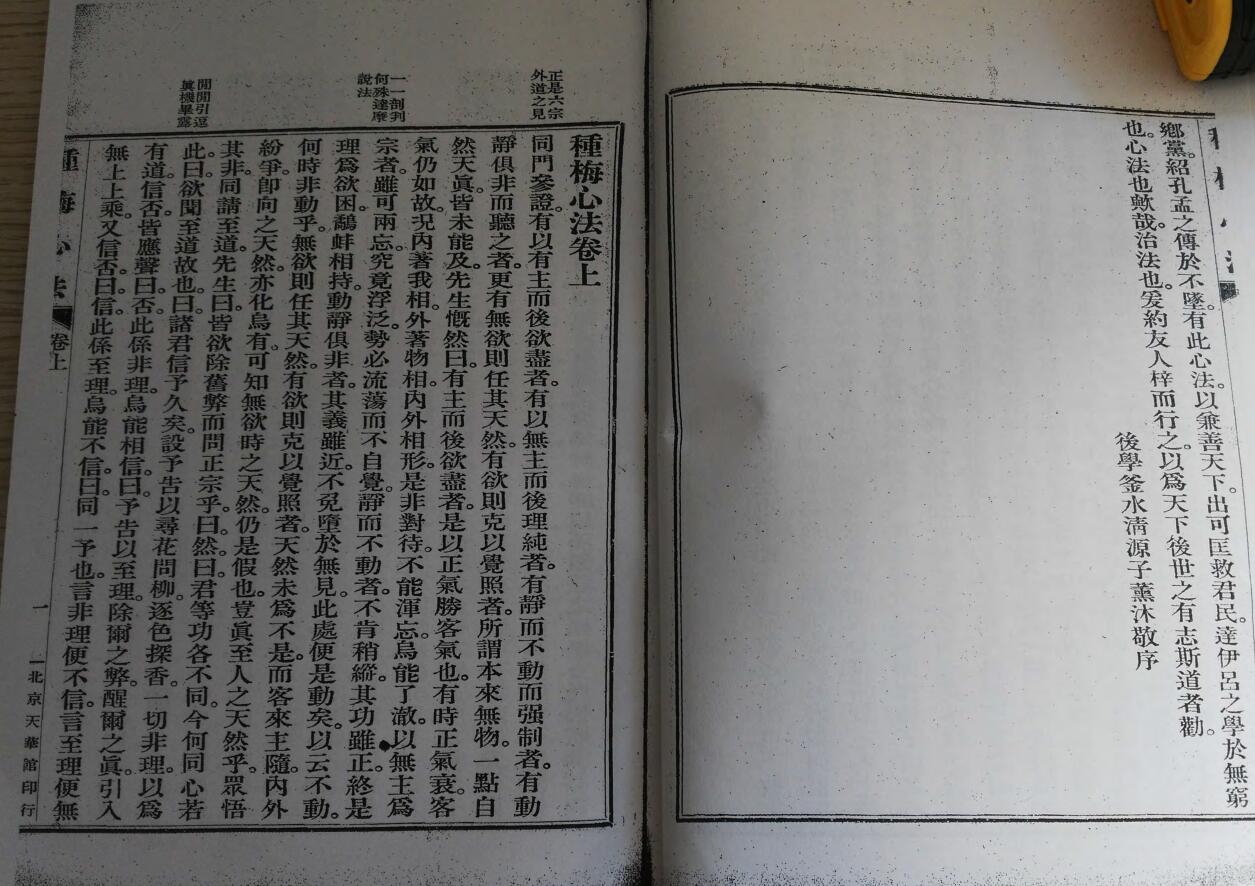 種梅心法
鄉黨。紹孔孟之傳於不墜。有此心法。以兼善天下。出可匡救君民。達伊呂之學於無窮
也。心法也歟哉。治法也。爰約友人梓而行之。以爲天下後世之有志斯道者勸。
後學釜水清源子薰沐敬序
種梅心法卷上
正是六宗
外道之見
同門參證。有以有主而後欲盡者。有以無主而後理純者。有靜而不動而强制者。有動
靜俱非而聽之者。更有無欲則任其天然。有欲則克以覺照者。所謂本來無物。一點自
然天眞。皆未能及。先生慨然曰。有主而後欲盡者。是以正氣勝客氣也。有時正氣衰。客
氣仍如故。况內著我相。外著物相。內外相形。是非對待。不能渾忘。烏能了澈。以無主爲
一一剖判
何殊達摩
說法
宗者。雖可兩忘。究竟浮泛。勢必流蕩而不自覺。靜而不動者。不肯稍縱。其功雖正。終是
理爲欲困。鷸蚌相持。動靜俱非者。其義雖近。不免墮於無見。此處便是動矣。以云不動。
何時非動乎。無欲則任其天然。有欲則克以覺照者。天然未爲不是。而客來主隨。內外
紛爭。卽向之天然。亦化烏有。可知無欲時之天然。仍是假也。豈眞至人之天然乎。眾悟
其非。同請至道。先生曰。皆欲除舊弊而問正宗乎。曰。然。曰。君等功各不同。今何同心若
閒閒引逗
眞機畢露
此。曰。欲聞至道故也。曰。諸君信予久矣。設予告以尋花問柳。逐色探香。一切非理。以爲
有道。信否。皆應聲曰。否。此係非理。烏能相信。曰。予告以至理。除爾之弊。醒爾之眞。引入
無上上乘。又信否。曰。信。此係至理。烏能不信。曰。同一予也。言非理便不信。言至理便無
種梅心法
卷上
一
北京天華館印行